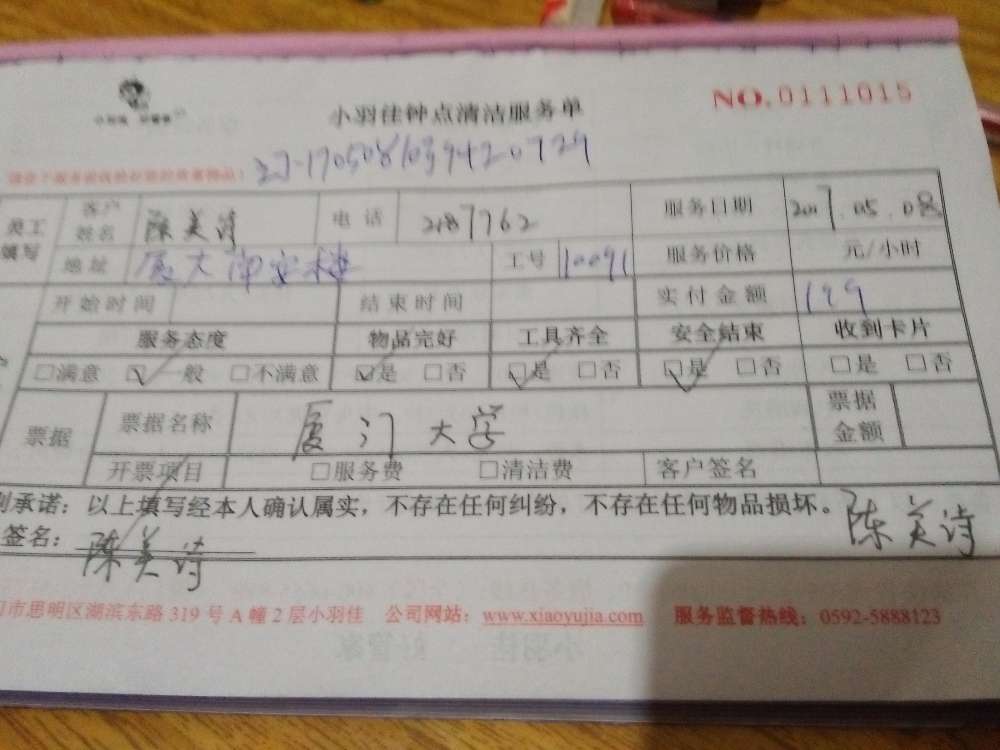 小羽佳 好管家
小羽佳钟点清洁服务单
NO.0111015
ZJ-1705081039420729
员工填写 客户姓名 陈美诗 电话 2187962 服务日期 2017.05.08
地址 厦大南安楼 工号 110091 服务价格 元/小时
开始时间 结束时间 实付金额 199
服务态度 物品完好 工具齐全 安全结束 收到卡片
□满意 □一般 □不满意 □是 □否 □是 □否 □是 □否 □是 □否
票据 票据名称 厦门大学 票据金额
开票项目 □服务费 □清洁费 客户签名
承诺:以上填写经本人确认属实,不存在任何纠纷,不存在任何物品损坏。 陈美诗
签名: 陈美诗
市思明区湖滨东路 319 号 A 幢 2 层小羽佳 公司网站: www.xiaoyujia.com 服务监督热线: 0592-5888123